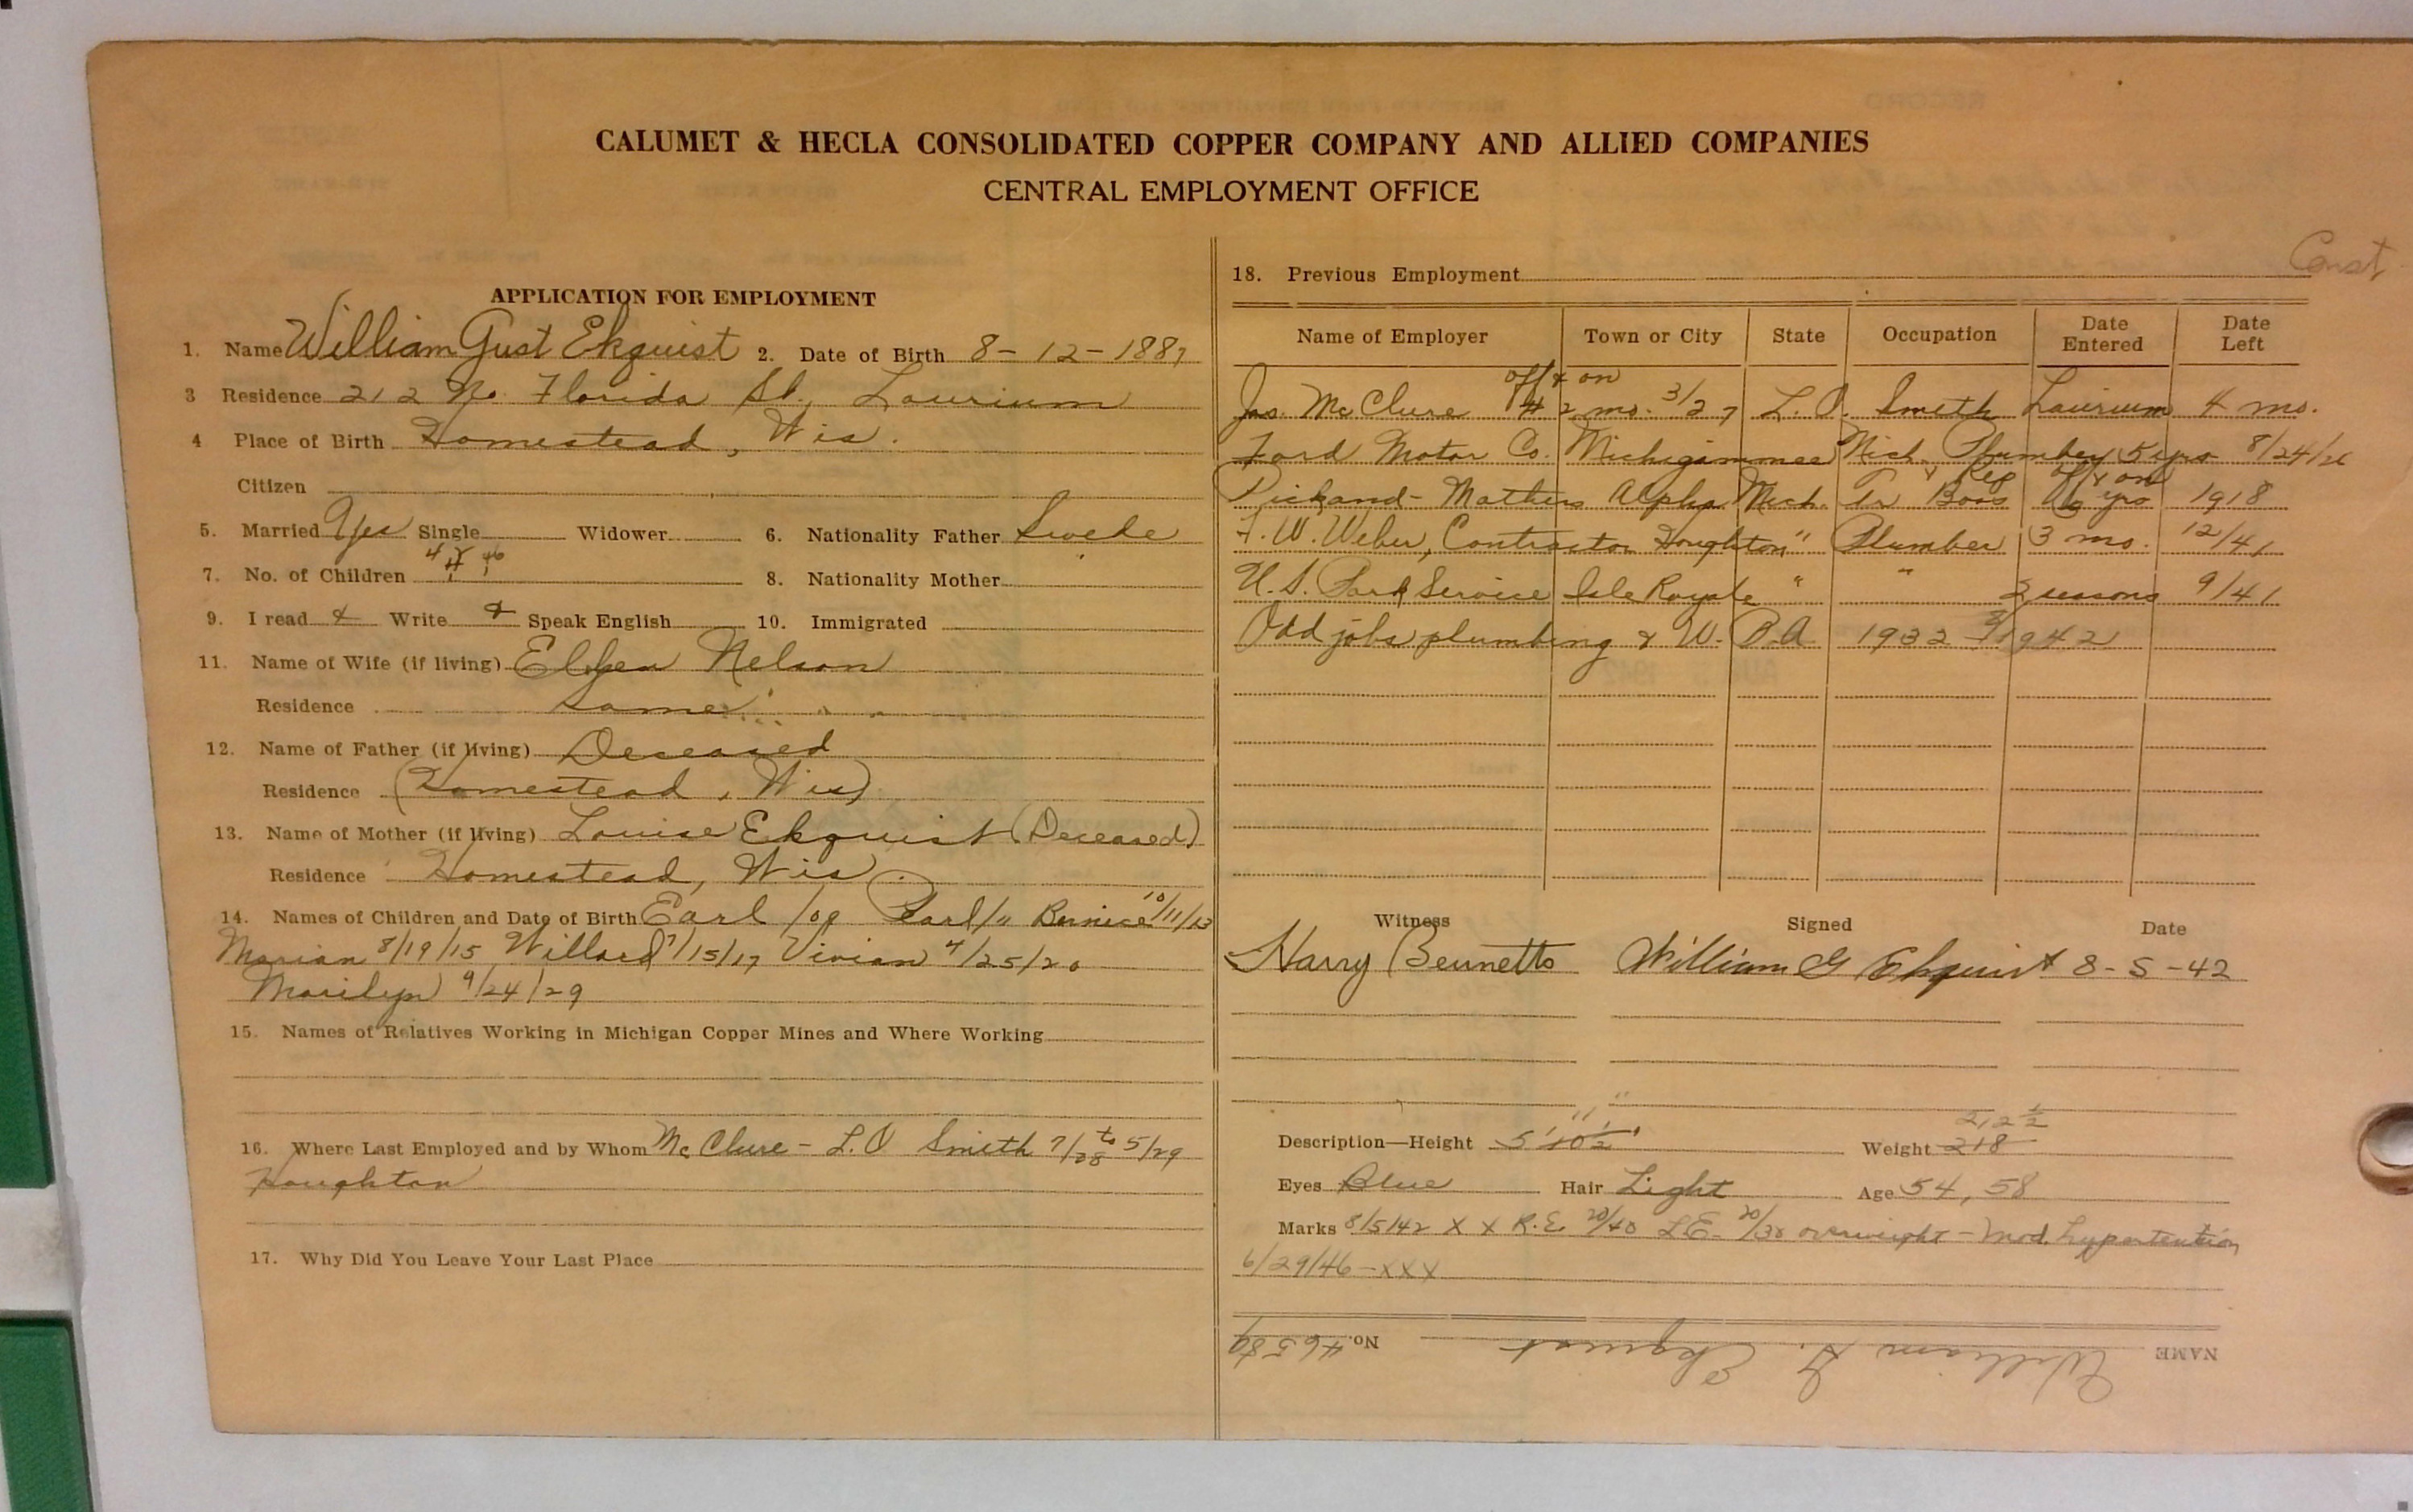 CALUMET & HECLA CONSOLIDATED COPPER COMPANY AND ALLIED COMPANIES
CENTRAL EMPLOYMENT OFFICE
APPLICATION FOR EMPLOYMENT
1. Name William Gust Ekquist 2. Date of Birth 8-12-1887
3 Residence 212 No. Florida St., Laurium
4 Place of Birth Homestead, Wis.
Citizen
5. Married Yes Single Widower 6. Nationality Father Swede
7. No. of Children 8. Nationality Mother
9. I read & Write & Speak English 10. Immigrated
11. Name of Wife (if living) Nelson
Residence Same
12. Name of Father (if living) Deceased
Residence (Homestead, Wis)
13. Name of Mother (if living) Louise Ekquist (Deceased)
Residence Homestead, Wis.
14. Names of Children and Date of Birth Earl /09 Pearl /11 Bernice 10/11/13
Marian 8/19/15 Willard 7/15/17 Vivian 4/25/20
Marilyn 9/24/29
15. Names of Relatives Working in Michigan Copper Mines and Where Working
16. Where Last Employed and by Whom McClure - L.O Smith 7/28 to 5/29
Houghton
17. Why Did You Leave Your Last Place
Const
18. Previous Employment
Name of Employer Town or City State Occupation Date Entered Date Left
off & on
Jas. McClure 2 mo. 3/27 L.O. Smith Laurium 4 mo.
Ford Motor Co. Michigammee Mich. Plumber 5 yrs 8/24/26
Pickand-Mathers Alpha Mich. Boss off & on 6 yrs 1918
F.W. Weber, Contractor Houghton " Plumber 3 mo. 12/41
U.S. Park Service Isle Royale " " 2 seasons 9/41
Odd jobs plumbing & W.P.A 1932 1942
Witness Signed Date
Harry Bennetts William G Ekquist 8-5-42
Description—Height 5' 10 1/2" Weight 218 212 1/2
Eyes Blue Hair Light Age 54, 58
Marks 8/5/42 X X R.E. 20/40 L.E. 20/30 overweight - mod. hypertention
6/29/46 - XXX
NAME William G. Ekquist No. 46589